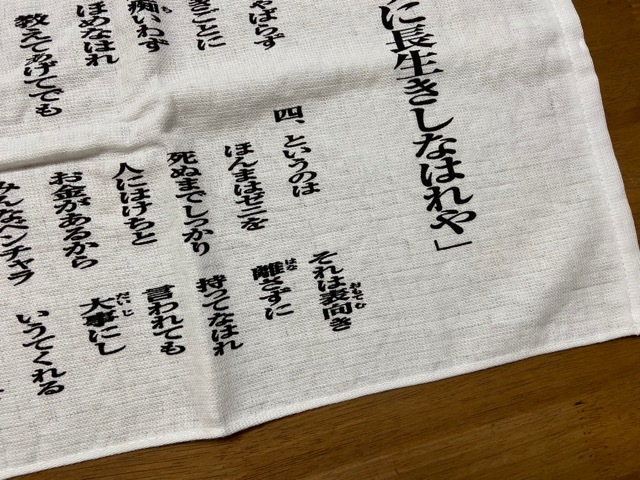 に長生きしなはれや」
やばらず
きごとに
痴いわず
ほめなはれ
教えてあげてでも
四、というのは　それは表向き
ほんまはゼニを　離さずに
死ぬまでしっかり　持ってなはれ
人にはけちと　言われても
お金があるから　大事にし
みんなベンチャラ　いうてくれる